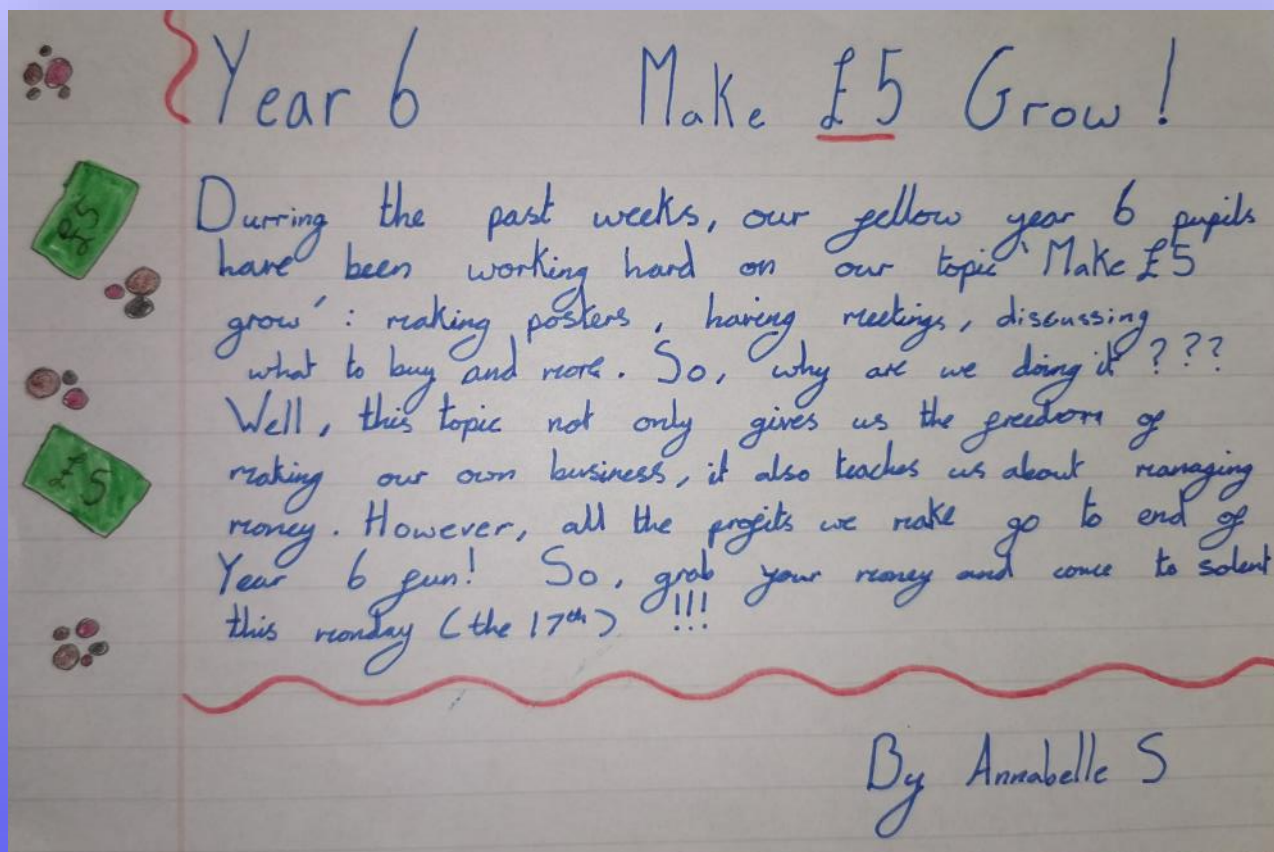 Year 6 Make £5 Grow!
Durring the past weeks, our fellow year 6 pupils
have been working hard on our topic 'Make £5
grow': making posters, having meetings, discussing
what to buy and more. So, why are we doing it ???
Well, this topic not only gives us the freedom of
making our own business, it also teaches us about managing
money. However, all the profits we make go to end of
Year 6 fun! So, grab your money and come to solent
this monday (the 17th) !!!
By Annabelle S
£5
£5